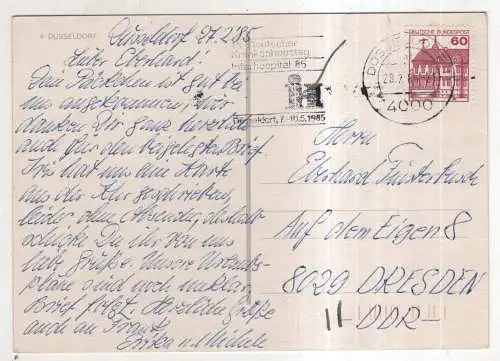 4 DÜSSELDORF
Düsseldorf 27.2.85
Lieber Eberhard!
Dein Päckchen ist gut bei
uns angekommen, wir
danken Dir ganz herzlich
auch für den beigelegten Brief.
Iris hat uns eine Karte
aus der Kur geschrieben,
leider ohne Absender, deshalb
schicke Du ihr von uns
liebe Grüße. Unsere Urlaubs-
pläne sind noch unklar.
Brief folgt. Herzliche Grüße
auch an
Erika u. Michele
Deutscher
Krankenhaustag
Interhospital 85
Düsseldorf, 7.-10.5.1985
4000
DEUTSCHE BUNDESPOST
60
Herrn
Eberhard Finsterbusch
Auf dem Eigen 8
8029 DRESDEN
DDR